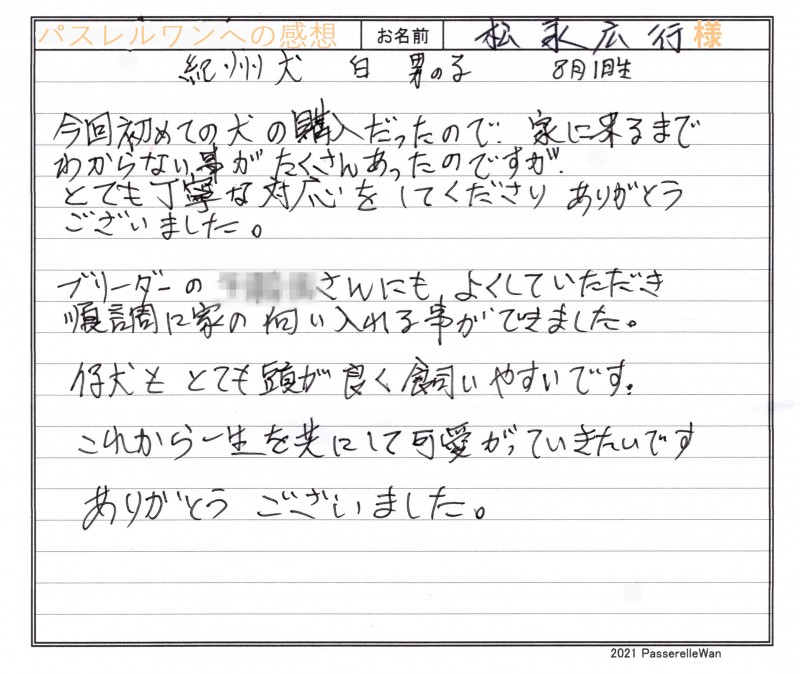 パスレルワンへの感想 お名前 松永広行様
紀州犬 白 男の子 8月1日生
今回初めての犬の購入だったので、家に来るまで
わからない事がたくさんあったのですが、
とても丁寧な対応をしてくださり ありがとう
ございました。
ブリーダーの さんにも、よくしていただき
順調に家の 伺い入れる事ができました。
仔犬も とても頭が良く飼いやすいです。
これから一生を共にして可愛がっていきたいです
ありがとう ございました。
2021 PasserelleWan